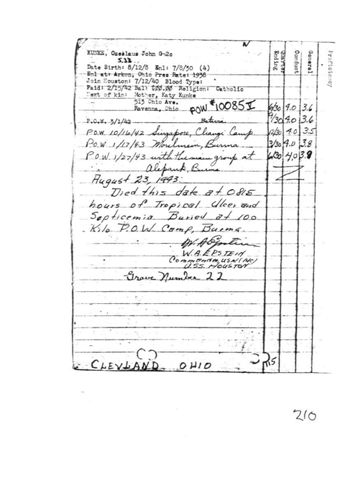 KUNKE, Ceslaus John G-2c
S2c
Date Birth: 8/12/8 Enl: 7/8/30 (4)
Enl at: Akron, Ohio Pres Rate: 1936
Join Houston: 7/12/40 Blood Type:
Paid: 2/15/42 Bal: Religion: Catholic
Next of kin: Mother, Katy Kunke
515 Ohio Ave.
Ravenna, Ohio
POW #10085 I
P.O.W. 3/1/42
P.O.W. 10/16/42 Singapore, Changi Camp
P.O.W. 1/17/43 Moulmein, Burma
P.O.W. 1/27/43 with the main group at
Burma
August 23, 1943
Died this date at 0815
hours of Tropical Ulcer and
Septicemia Buried at 100
Kilo P.O.W. Camp, Burma
W.A. Epstein
W.A. EPSTEIN
Commander, USN (MC)
U.S.S. HOUSTON
Grave Number 22
CLEVLAND OHIO
Rating
Conduct
General
6/30 4.0 3.6
9/30 4.0 3.6
12/30 4.0 3.5
3/30 4.0 3.8
6/30 4.0 3.8
210